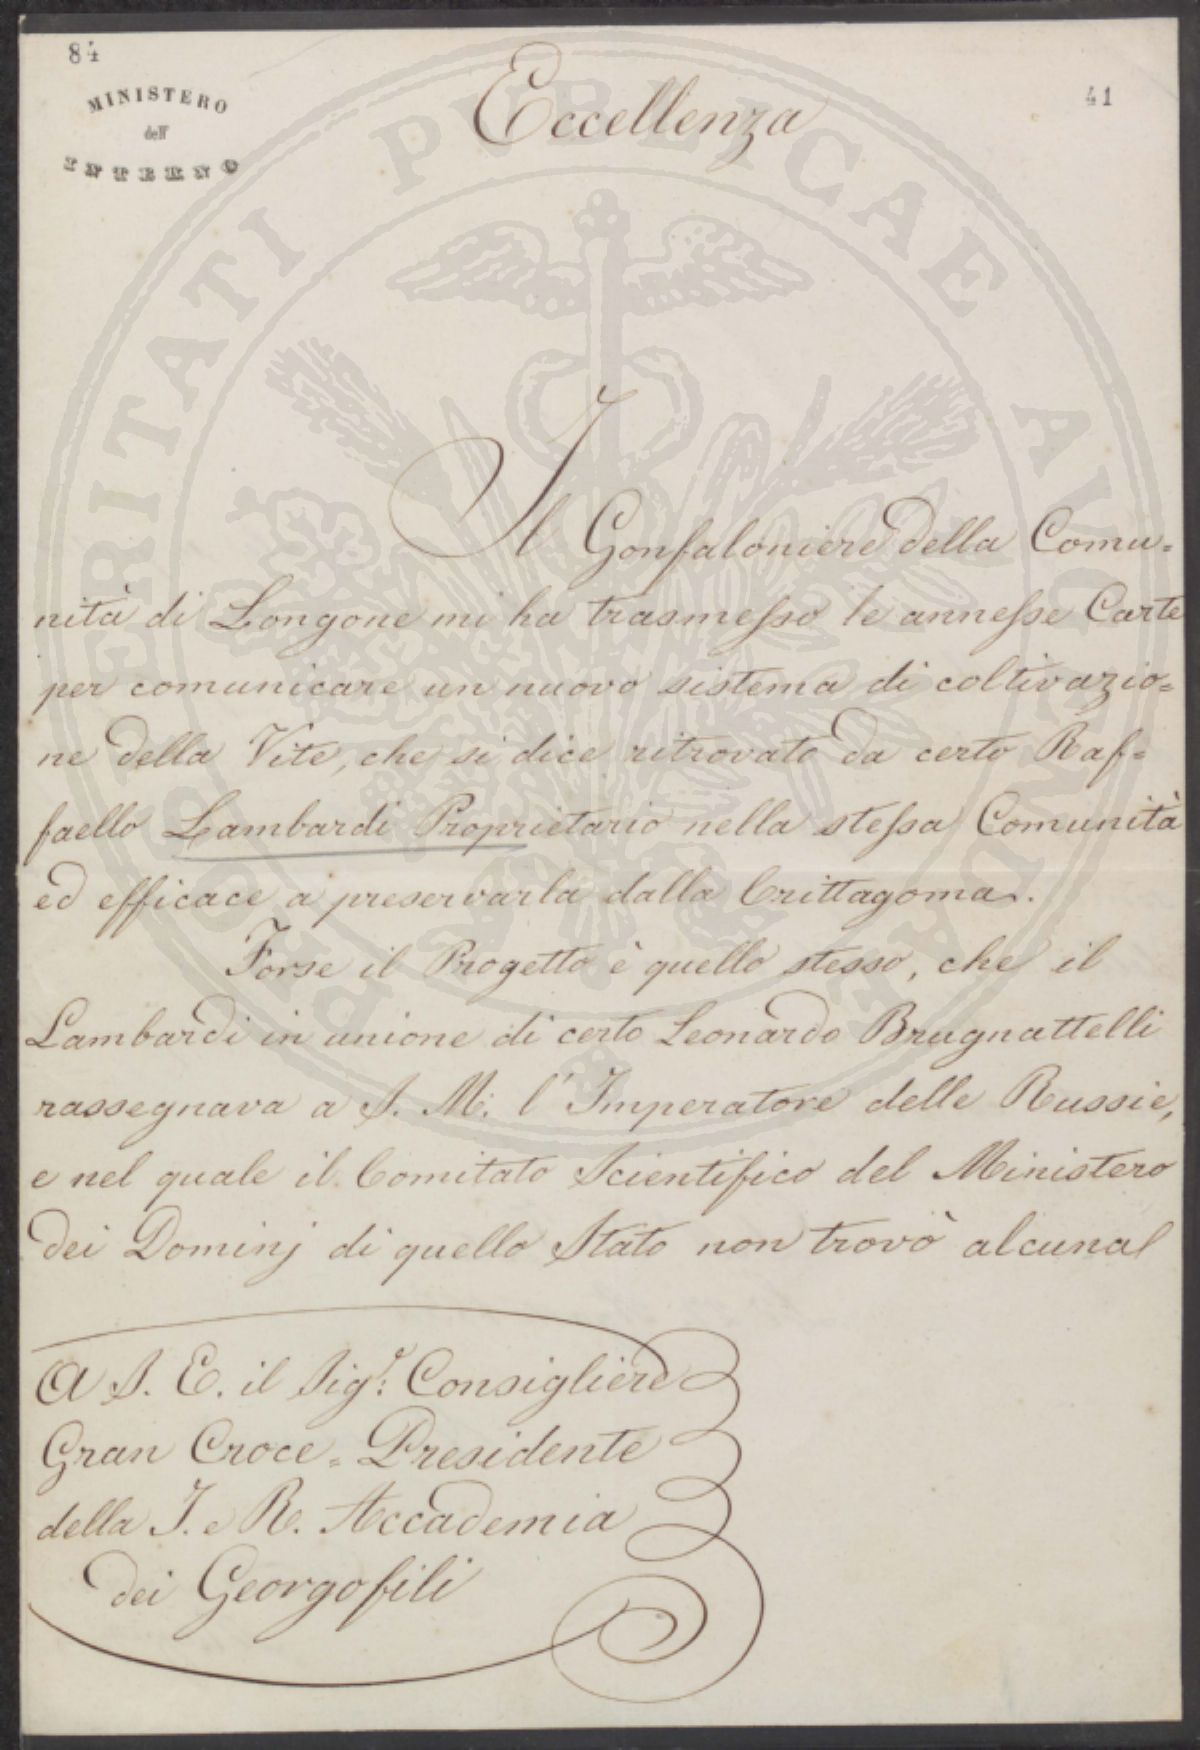 84
MINISTERO
dell'
INTERNO
41
Eccellenza
Il Gonfaloniere della Comu=
nità di Longone mi ha trasmesso le annesse Carte
per comunicare un nuovo sistema di coltivazio=
ne della Vite, che si dice ritrovato da certo Raf=
faello Lambardi Proprietario nella stessa Comunità
ed efficace a preservarla dalla Crittagoma.
Forse il Progetto è quello stesso, che il
Lambardi in unione di certo Leonardo Brugnattelli
rassegnava a S. M. l'Imperatore delle Russie,
e nel quale il Comitato Scientifico del Ministero
dei Dominj di quello Stato non trovò alcuna
A S. E. il Sig.r Consigliere
Gran Croce = Presidente
della I. e R. Accademia
dei Georgofili
PROSPERITATI PVBLICAE AVGENDAE